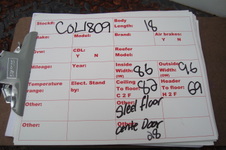 Stock#: COL1809 Body Length: 18
Make: Model: Brand: Air brakes: Y N
Engine: CDL: Y N Reefer Model:
Mileage: Year: Inside Width: (W) 86 Outside Width: (W) 96
Temperature range: Elect. Stand by: Ceiling To floor: 85 Header To floor: 69
Other: Other: Steel floor
Other: Other: Door